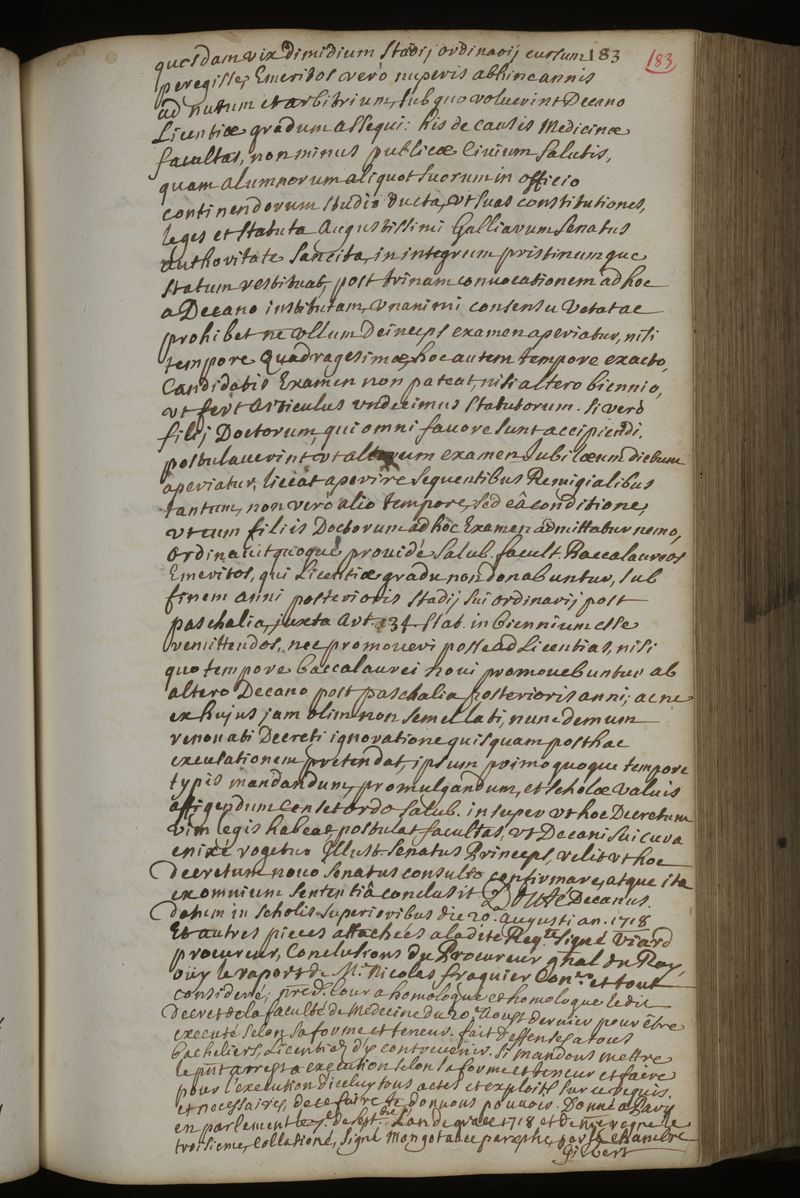 quosdam vix dimidium Stadij ordinarij cursum 183
183
peregisse, Emeritos verò nuperis abhinc annis
ad nutum et arbitrium, sub quo voluerint Decano
Licentiæ gradum assequi: his de causis Medicinæ
facultas, non minus publicæ Civium Salutis,
quam alumnorum aliquot suorum in officio
continendorum studio ducta, ut suas constitutiones,
leges et statuta Augustissimi Galliarum Senatus
authoritate Sancita, in integrum pristinumque
Statum restituat, post trinam convocationem ad hoc
a Decano institutam, unanimi consensu Vetat ac
prohibet ne ullum Deinceps examen aperiatur, nisi
tempore Quadragesimæ, hoc autem tempore exacto,
Candidatis Examen non pateat, nisi altero biennio,
ut fert Articulus undecimus Statutorum. si verò
filij Doctorum, qui omni favore sunt accipiendi,
postulaverint ut alterum examen Jubilæum dictum
aperiatur, liceat aperire sequentibus Remigialibus
tantum, non verò alio tempore, sed eâ conditione,
ut cum filiis Doctorum ad hoc Examen admittatur nemo,
ordinavit quoque providè Salub. facult Baccalaureos
Emeritos, qui Licentiæ gradu non donabuntur, sub
finem anni posterioris Stadij sui ordinarij post
paschalia, juxta Art. 34. Stat. in biennium esse
remittendos, nec promoveri posse ad Licentias, nisi
quo tempore baccalaurei novi promovebuntur ab
altero Decano post paschalia posterioris anni; ac ne
ex hujus jam olim non semel lati, nunc demum
renovati Decreti ignoratione quisquam posthac
excusationem pretendat, ipsum primo quoque tempore
typis mandandum, promulgandum, et scholæ valvis
affigendum Censet ordo Salub. insuper ut hoc Decretum
vim legis habeat, postulat facultas, ut Decani sui cura
enixè rogetur Illust. Senatus Princeps, velit ut hoc
decretum novo Senatus consulto confirmare, atque ita
ex omnium Sententiâ conclusit Douté Decanus.
datum in Scholis Superioribus die 20.a augusti an. 1718
Et autres pieces attachées a ladite Reqte. Signé Viard
procureur, Conclusions du Procureur gñal du Roy,
oüy le raport de Mr. Nicolas fraguier Conr. et tout
consideré; nred. Cour a homologué et homologue ledit
Decret de la faculté de Medecine du 20.e Aoust dernier pour être
executé selon sa forme et teneur. fait deffenses a tous
bacheliers, Licentiez d'y contrevenir. Si mandons mettre
le pñt arrest a execution selon sa forme et teneur et faire
pour l'execution d'iceluy tous actes et exploits sur ce requis
et necessaires, de ce faire te donnons pouvoir. Donné a Paris
en parlement le de Septbre. L'an de grace 1718 et de nre regne le
troisieme, Collationé, Signé Mongot avec paraphe, par la Chambre
Gilbert